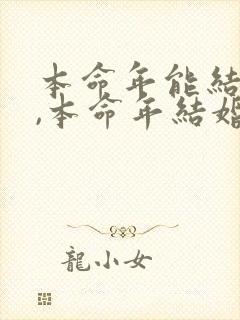 本命年能結
,本命年結婚
龍小女